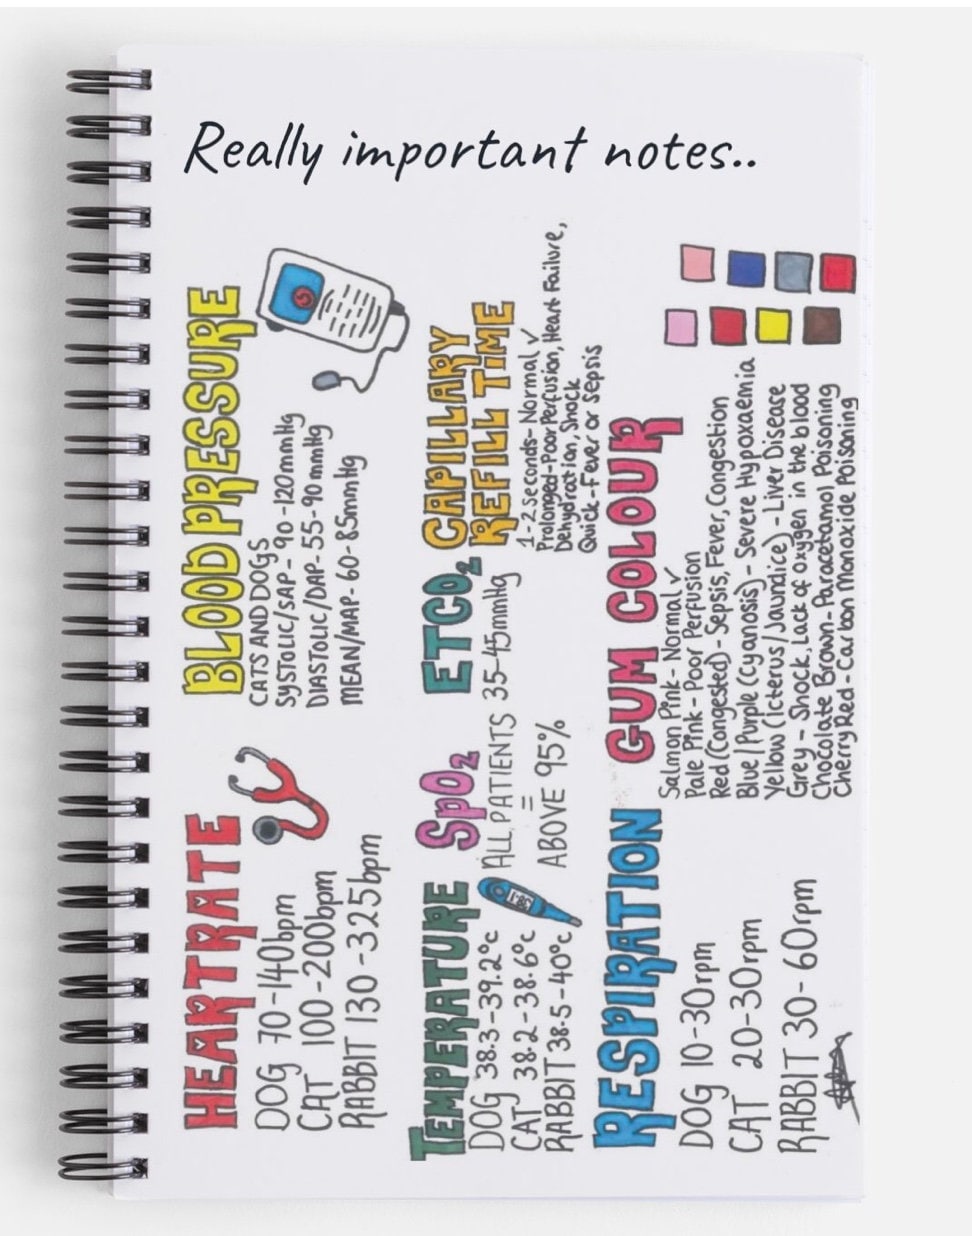 Really important notes..
HEARTRATE
DOG 70-140bpm
CAT 100-200bpm
RABBIT 130-325bpm
BLOOD PRESSURE
CATS AND DOGS
SYSTOLIC/SAP - 90-120mmHg
DIASTOLIC/DAP-55-90mmHg
MEAN/MAP-60-85mmHg
TEMPERATURE
DOG 38.3-39.2°c
CAT 38.2-38.6°c
RABBIT 38.5-40°c
38.1
SpO₂
ALL PATIENTS
=
ABOVE 95%
ETCO₂
35-45mmHg
CAPILLARY
REFILL TIME
1-2 seconds-Normal ✓
Prolonged-Poor Perfusion, Heart Failure,
Dehydration, Shock
Quick-Fever or Sepsis
RESPIRATION
DOG 10-30rpm
CAT 20-30rpm
RABBIT 30-60rpm
GUM COLOUR
Salmon Pink-Normal ✓
Pale Pink-Poor Perfusion
Red (Congested)-Sepsis, Fever, Congestion
Blue/Purple (Cyanosis)-Severe Hypoxaemia
Yellow (Icterus/Jaundice)-Liver Disease
Grey-Shock, Lack of Oxygen in the blood
Chocolate Brown-Paracetamol Poisoning
Cherry Red-Carbon Monoxide Poisoning